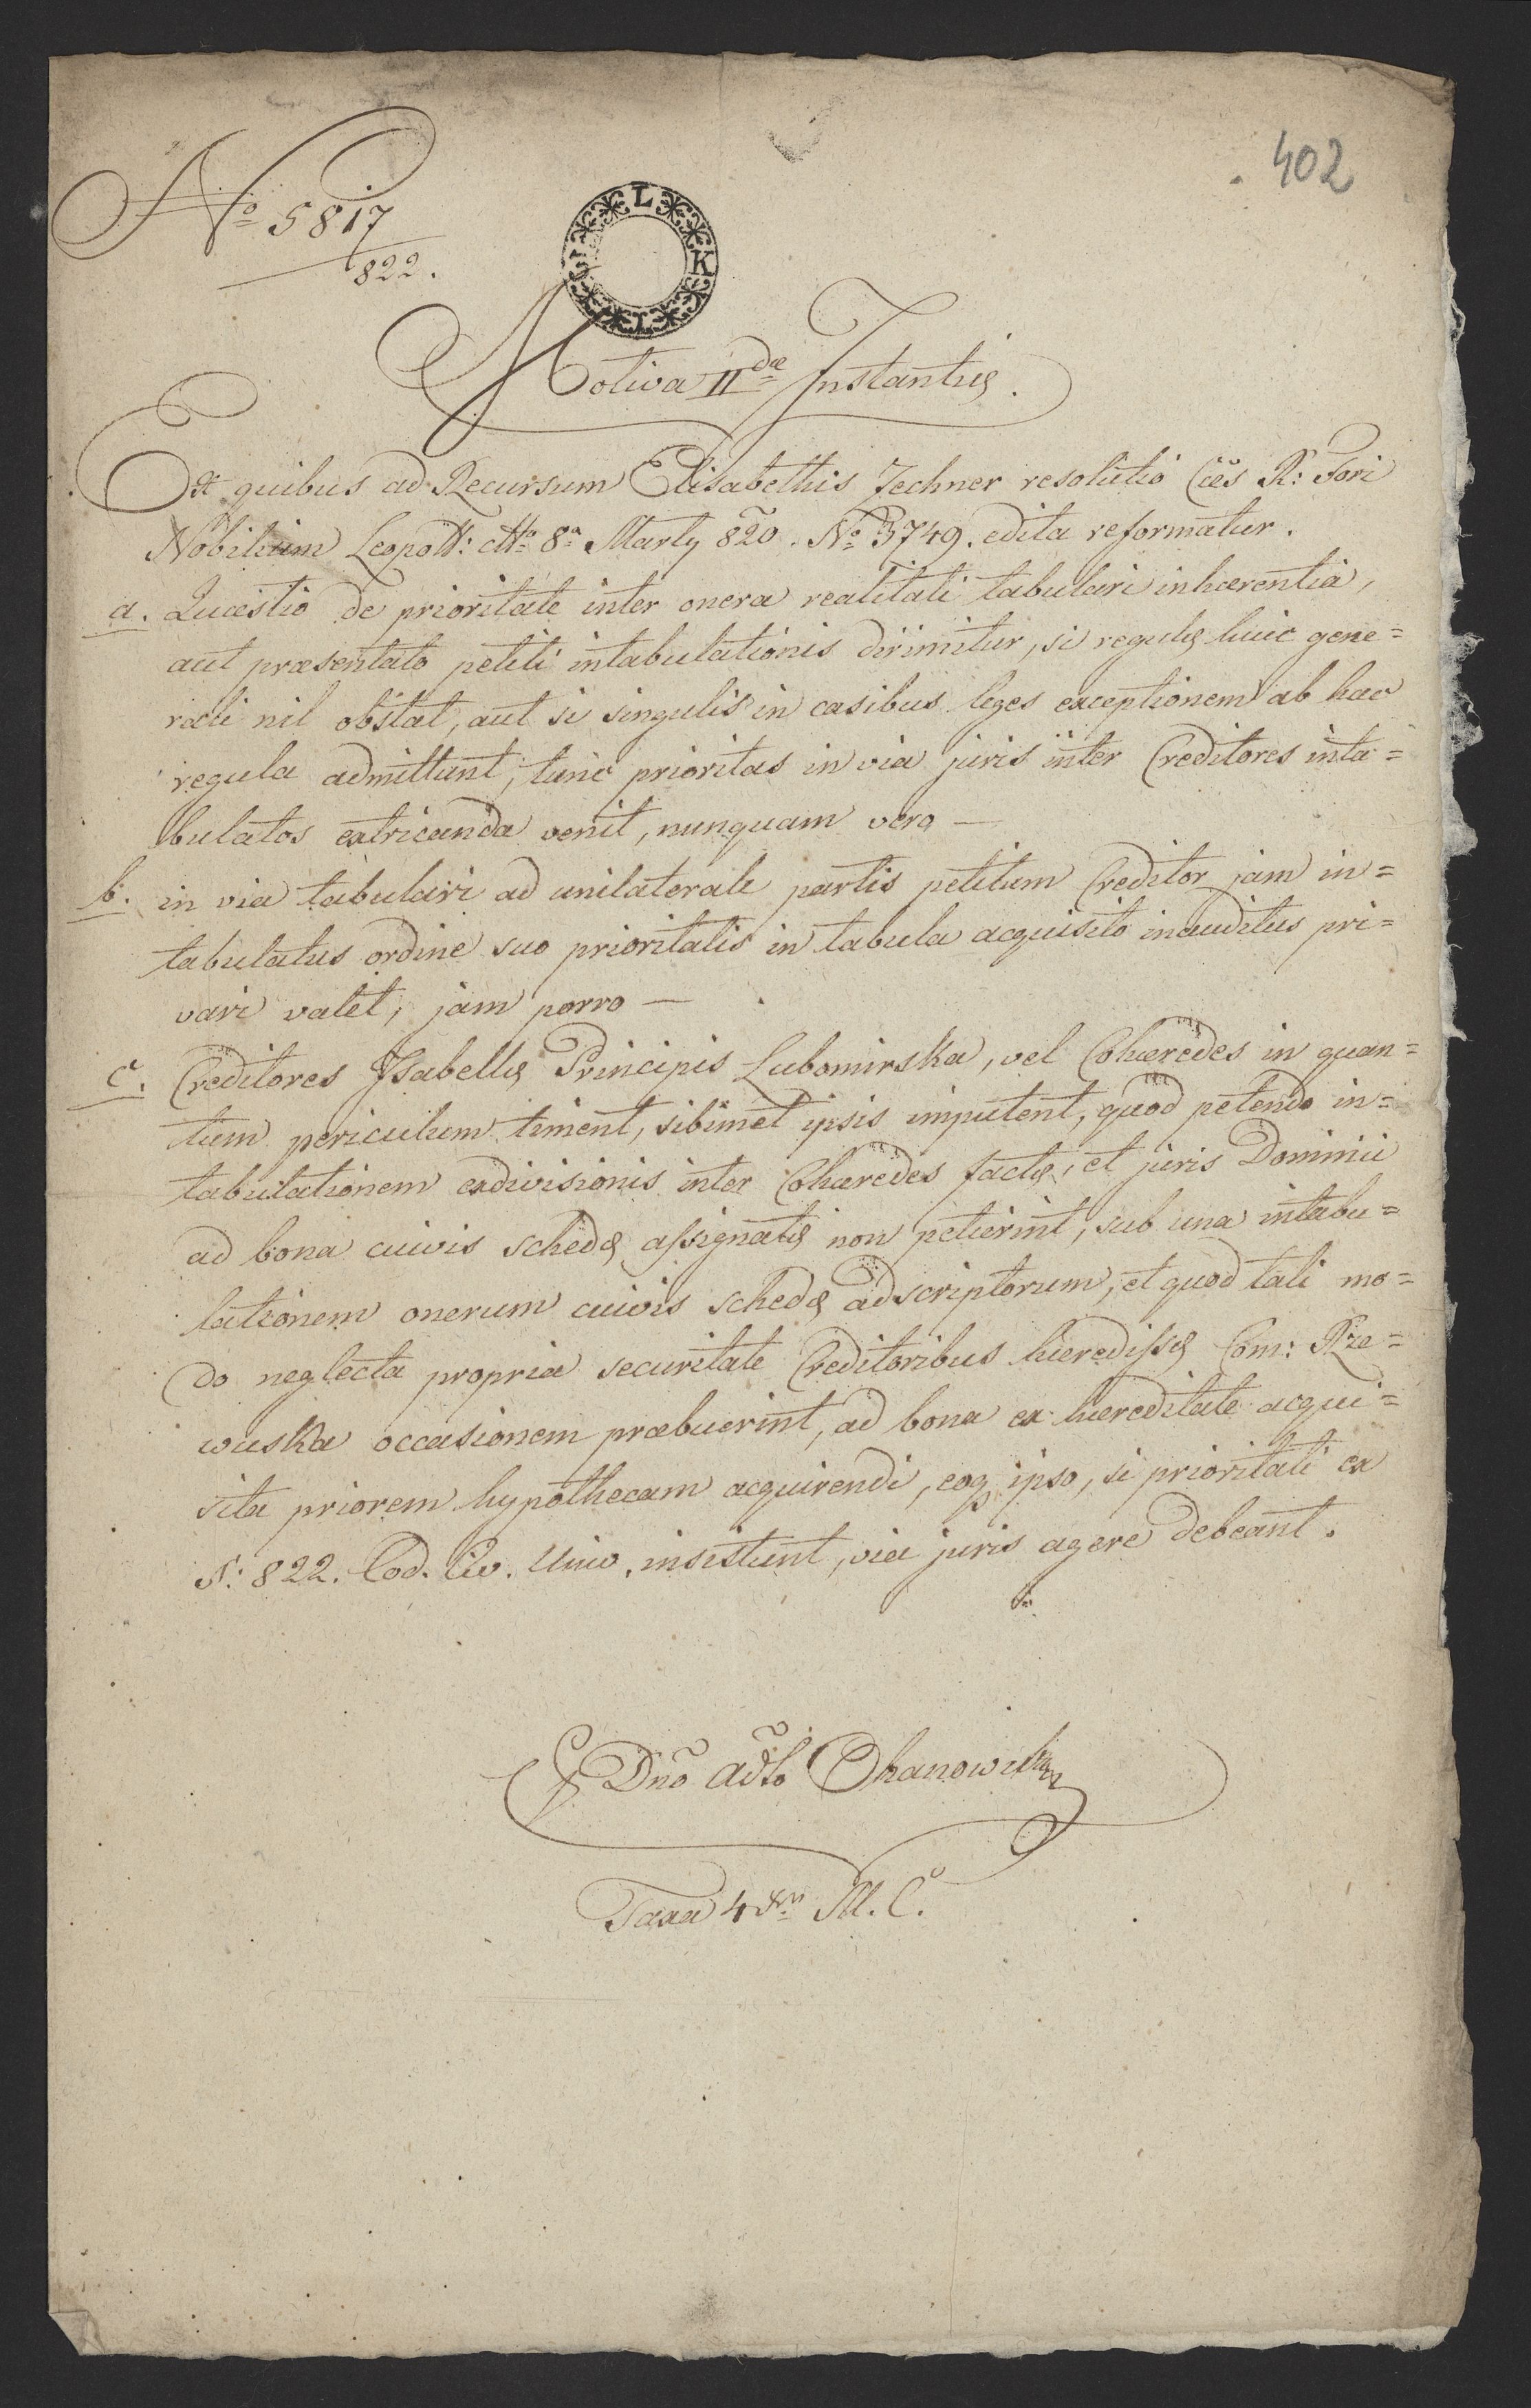 402
No 5817
822.
L K L
Motiva IIdae Instantiæ.
Ex quibus ad Recursum Elisabethis Zechner resolutio Cæs R: Fori
Nobilium Leopoll: dtto 8a Marty 820. No 3749. edita reformatur.
a. Quæstio de prioritate inter onera realitati tabulari inhærentia,
aut præsentato petiti intabulationis dirimitur, si regulæ huic gene=
rali nil obstat, aut si singulis in casibus leges exceptionem ab hac
regula admittunt, tunc prioritas in via juris inter Creditores inta=
bulatos extricanda venit, nunquam vero —
b. in via tabulari ad unilaterale partis petitum Creditor jam in=
tabulatus ordine suo prioritatis in tabula acquisito inauditus pri=
vari valet, jam porro —
c. Creditores Isabellæ Principis Lubomirska, vel Cohæredes in quan=
tum periculum timent, sibimet ipsis imputent, quod petendo in=
tabulationem exdivisionis inter Cohæredes factæ, et juris Dominii
ad bona cuivis schedæ assignatæ non petierint, sub una intabu=
lationem onerum cuivis schedæ adscriptorum, et quod tali mo=
do neglecta propria securitate Creditoribus hæredissæ Com: Rze=
wuska occasionem præbuerint, ad bona ex hæreditate acqui=
sita priorem hypothecam acquirendi, eoq ipso, si prioritati ex
§: 822. Cod. Civ. Univ. insistunt, via juris agere debeant.
Dno Adto
Taxa 4 xr M. C.